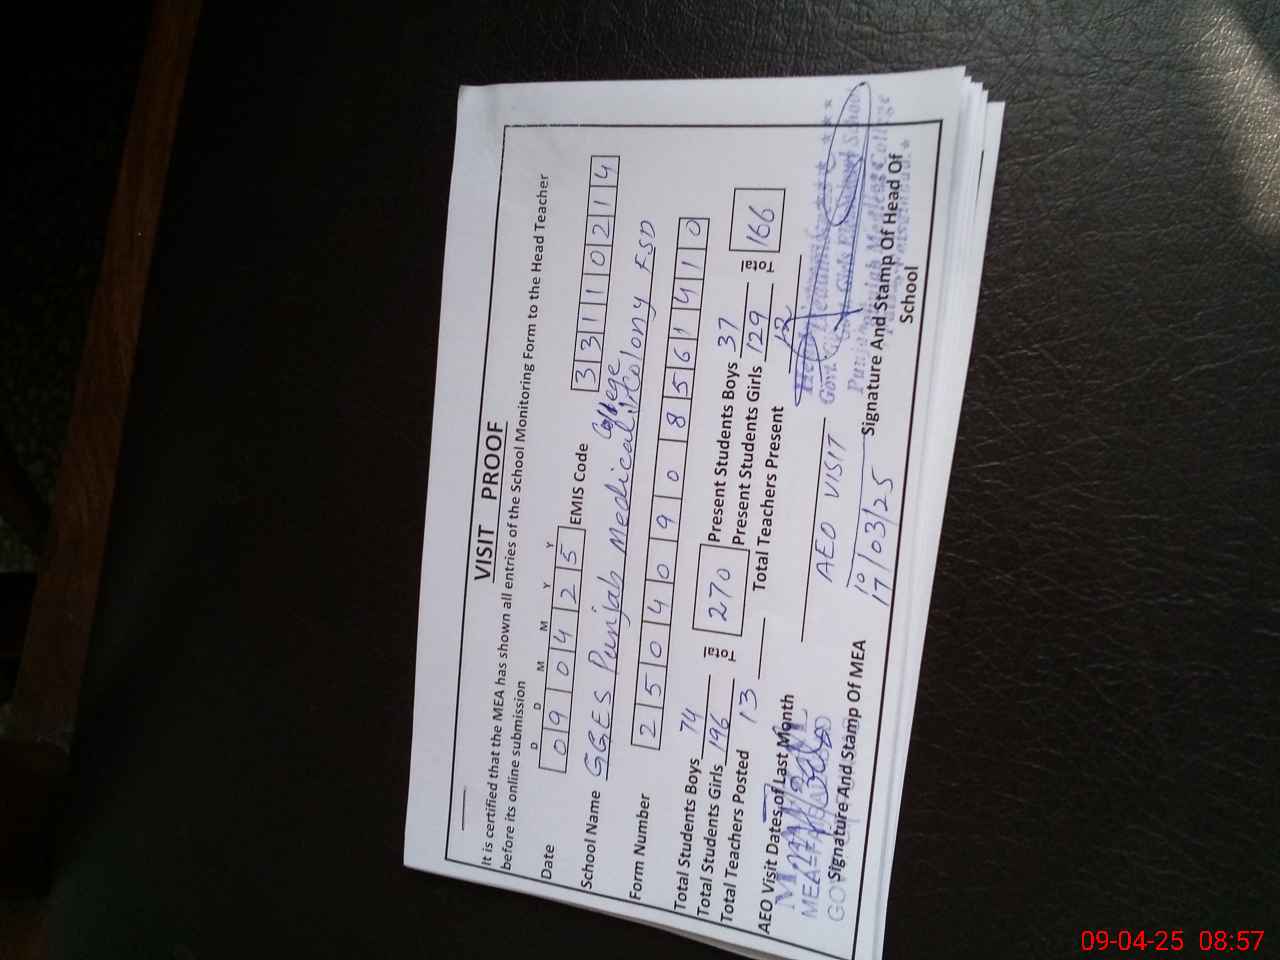 VISIT PROOF
It is certified that the MEA has shown all entries of the School Monitoring Form to the Head Teacher
before its online submission
D D M M Y Y
Date 0 9 0 4 2 5 EMIS Code 3 3 1 1 0 2 1 4
School Name GGES Punjab Medical College Colony FSD
Form Number 2 5 0 4 0 9 0 8 5 6 1 4 1 0
Total Students Boys 74 Total 270 Present Students Boys 37 Total 166
Total Students Girls 196 Present Students Girls 129
Total Teachers Posted 13 Total Teachers Present 12
AEO Visit Dates of Last Month
AEO VISIT
10
17/03/25
Signature And Stamp Of MEA
Signature And Stamp Of Head Of
School
Punjab Medical College
09-04-25 08:57